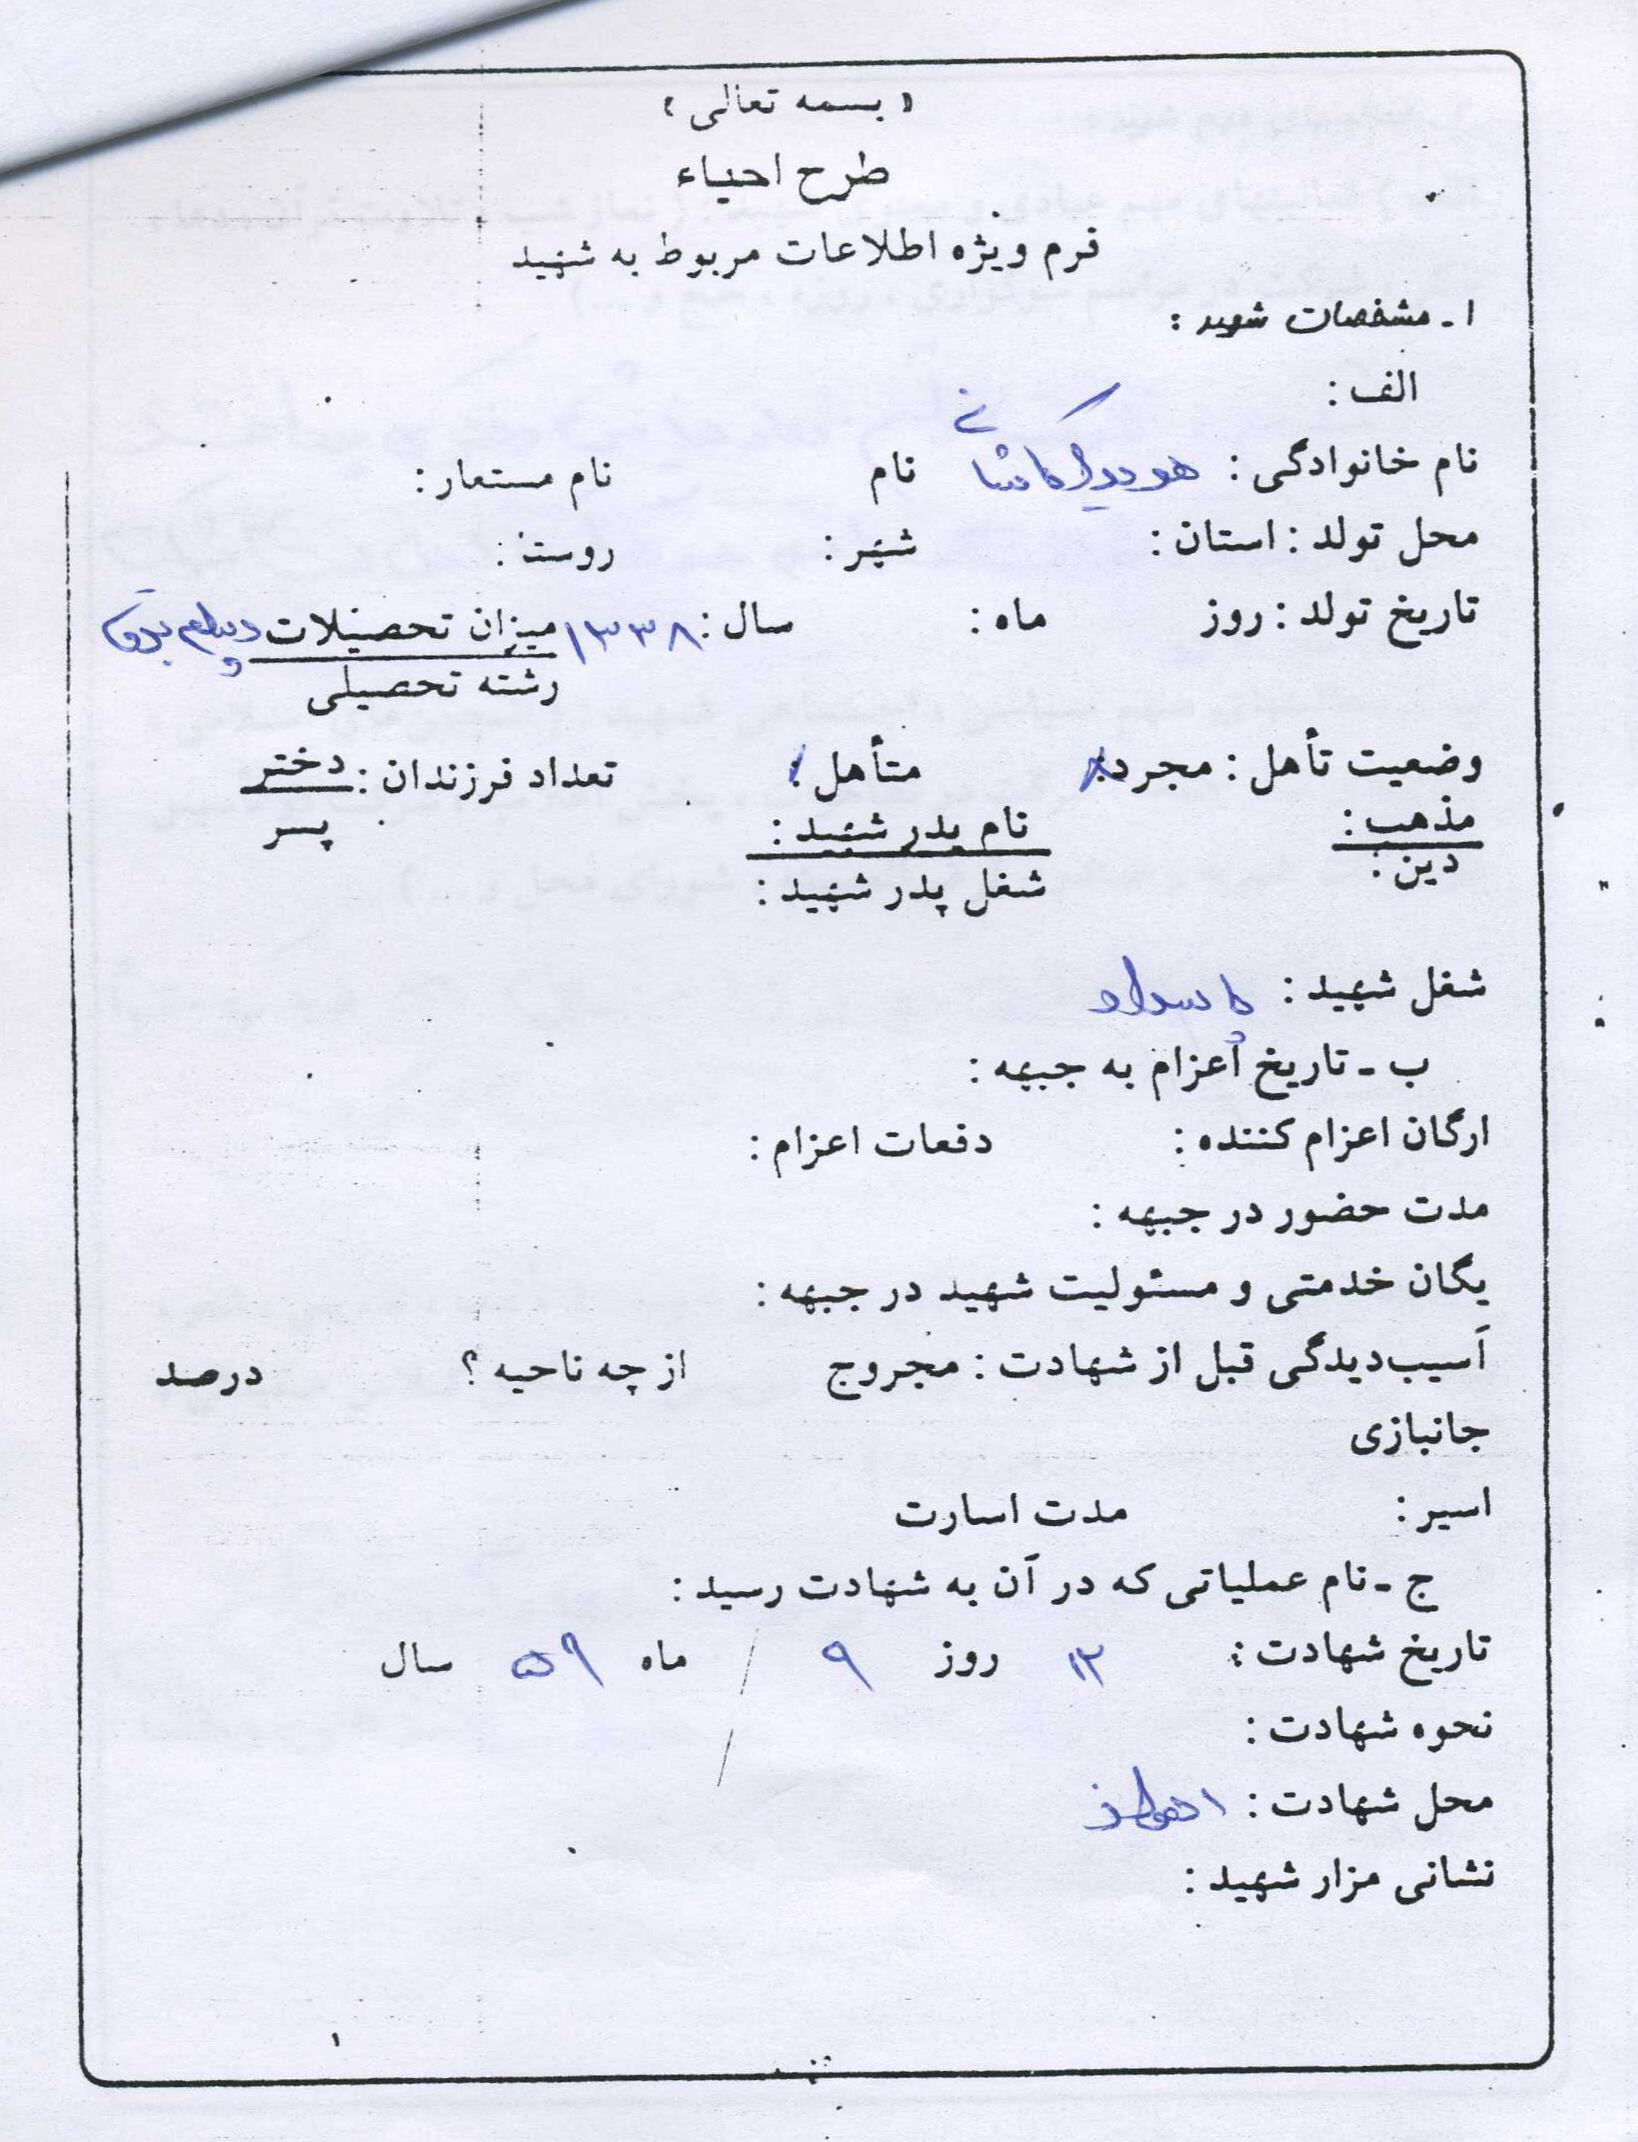 « بسمه تعالی »
طرح احیاء
فرم ویژه اطلاعات مربوط به شهید
۱ـ مشخصات شهید :
الف :
نام خانوادگی : هویدا کاشانی نام نام مستعار :
محل تولد : استان : شهر : روستا :
تاریخ تولد : روز ماه : سال : ۱۳۳۸ میزان تحصیلات دیپلم برق
رشته تحصیلی
وضعیت تأهل : مجرد : متأهل : تعداد فرزندان : دختر
پسر
مذهب : نام پدر شهید :
دین : شغل پدر شهید :
شغل شهید : پاسدار
ب ـ تاریخ اعزام به جبهه :
ارگان اعزام کننده : دفعات اعزام :
مدت حضور در جبهه :
یگان خدمتی و مسئولیت شهید در جبهه :
آسیب‌دیدگی قبل از شهادت : مجروح از چه ناحیه ؟ درصد
جانبازی
اسیر : مدت اسارت
ج ـ نام عملیاتی که در آن به شهادت رسید :
تاریخ شهادت : ۱۲ روز ۹ ماه ۵۹ سال
نحوه شهادت :
محل شهادت : اهواز
نشانی مزار شهید :
۱